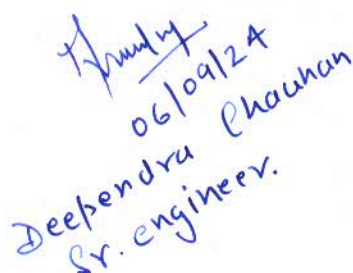 06/09/24
Deependra Chauhan
Sr. engineer.